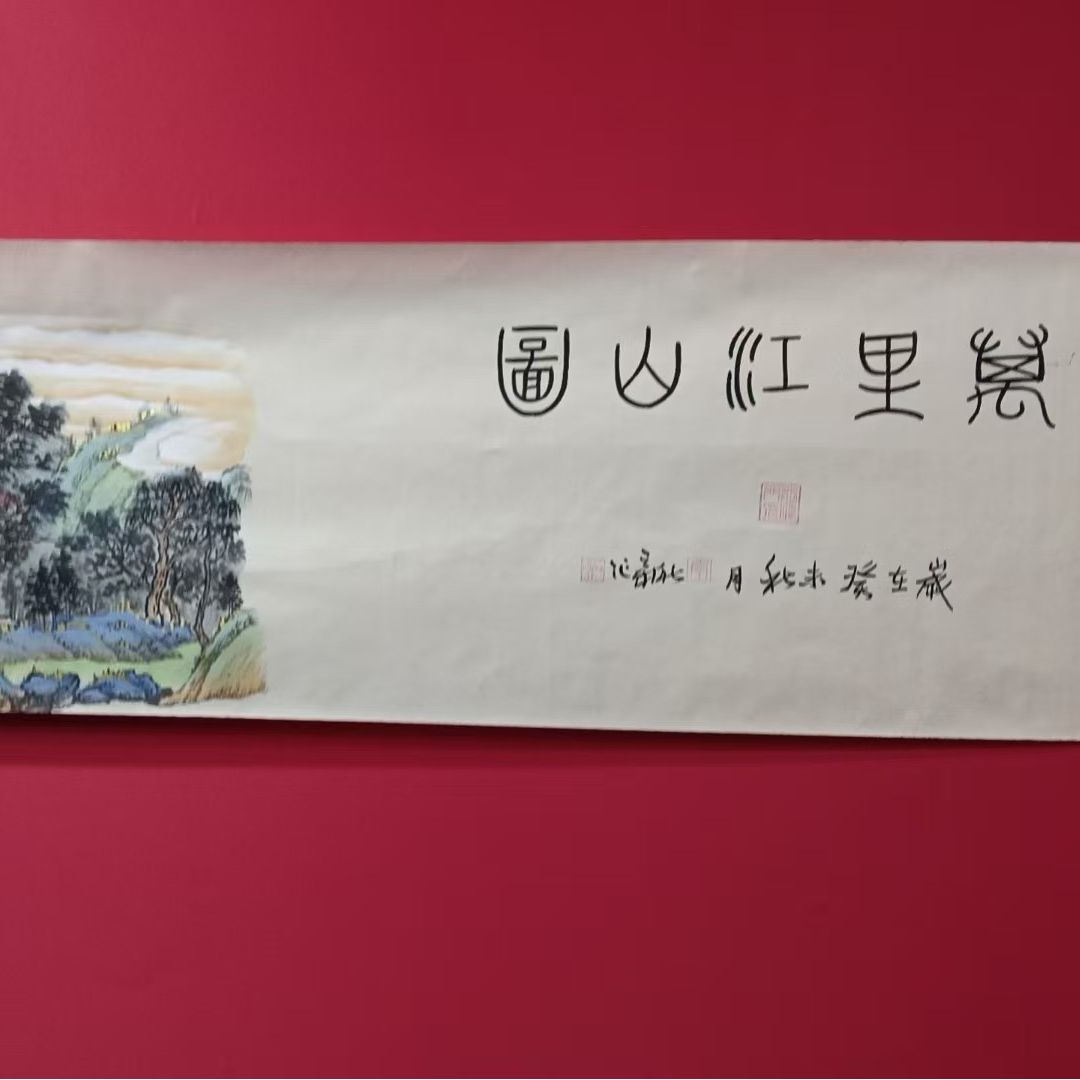 萬里江山圖
歲在癸未秋月